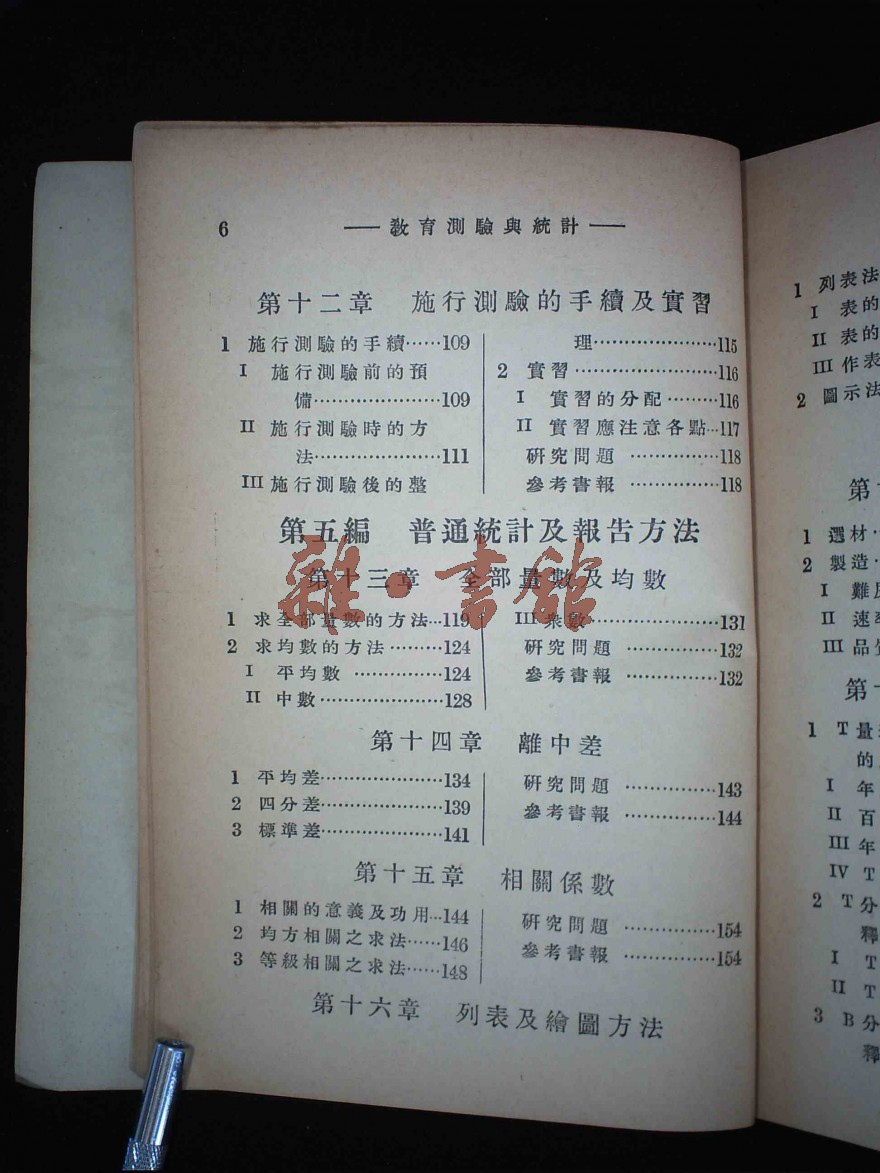 6
——教育測驗與統計——
第十二章 施行測驗的手續及實習
1 施行測驗的手續……109
I 施行測驗前的預
備…………………109
II 施行測驗時的方
法…………………111
III 施行測驗後的整
理…………………115
2 實習…………………116
I 實習的分配………116
II 實習應注意各點…117
研究問題 ……………118
參考書報 ……………118
第五編 普通統計及報告方法
第十三章 全部量數及均數
1 求全部量數的方法…119
2 求均數的方法………124
I 平均數 ……………124
II 中數…………………128
III 衆數…………………131
研究問題 ……………132
參考書報 ……………132
第十四章 離中差
1 平均差…………………134
2 四分差…………………139
3 標準差…………………141
研究問題 ……………143
參考書報 ……………144
第十五章 相關係數
1 相關的意義及功用…144
2 均方相關之求法……146
3 等級相關之求法……148
研究問題 ……………154
參考書報 ……………154
第十六章 列表及繪圖方法
雜·書館
1 列表法
I 表的
II 表的
III 作表
2 圖示法
第
1 選材
2 製造
I 難
II 速
III 品
第
1 T量
的
I 年
II 百
III 年
IV T
2 T分
釋
I T
II T
3 B分
釋